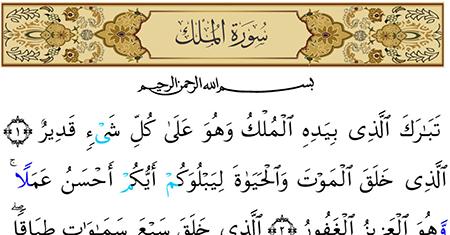 سُورَةُ الْمُلْكِ
بِسْمِ اللهِ الرَّحْمَنِ الرَّحِيمِ
تَبَارَكَ ٱلَّذِى بِيَدِهِ ٱلْمُلْكُ وَهُوَ عَلَىٰ كُلِّ شَىْءٍ قَدِيرٌ ﴿١﴾
ٱلَّذِى خَلَقَ ٱلْمَوْتَ وَٱلْحَيَوٰةَ لِيَبْلُوَكُمْ أَيُّكُمْ أَحْسَنُ عَمَلًا ۚ
وَهُوَ ٱلْعَزِيزُ ٱلْغَفُورُ ﴿٢﴾ ٱلَّذِى خَلَقَ سَبْعَ سَمَٰوَٰتٍ طِبَاقًا ۖ